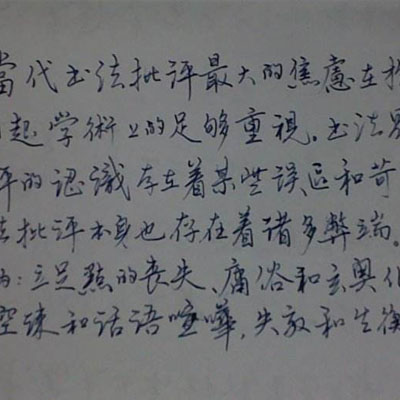 當代书法批评最大的焦慮在扵
起学術上的足够重視。书法界
评的認識存在着某些误區和苛
批评本身也存在着诸多弊端。
：立足點的丧失、庸俗和玄奥化
空疎和话语喧嘩，失效和生